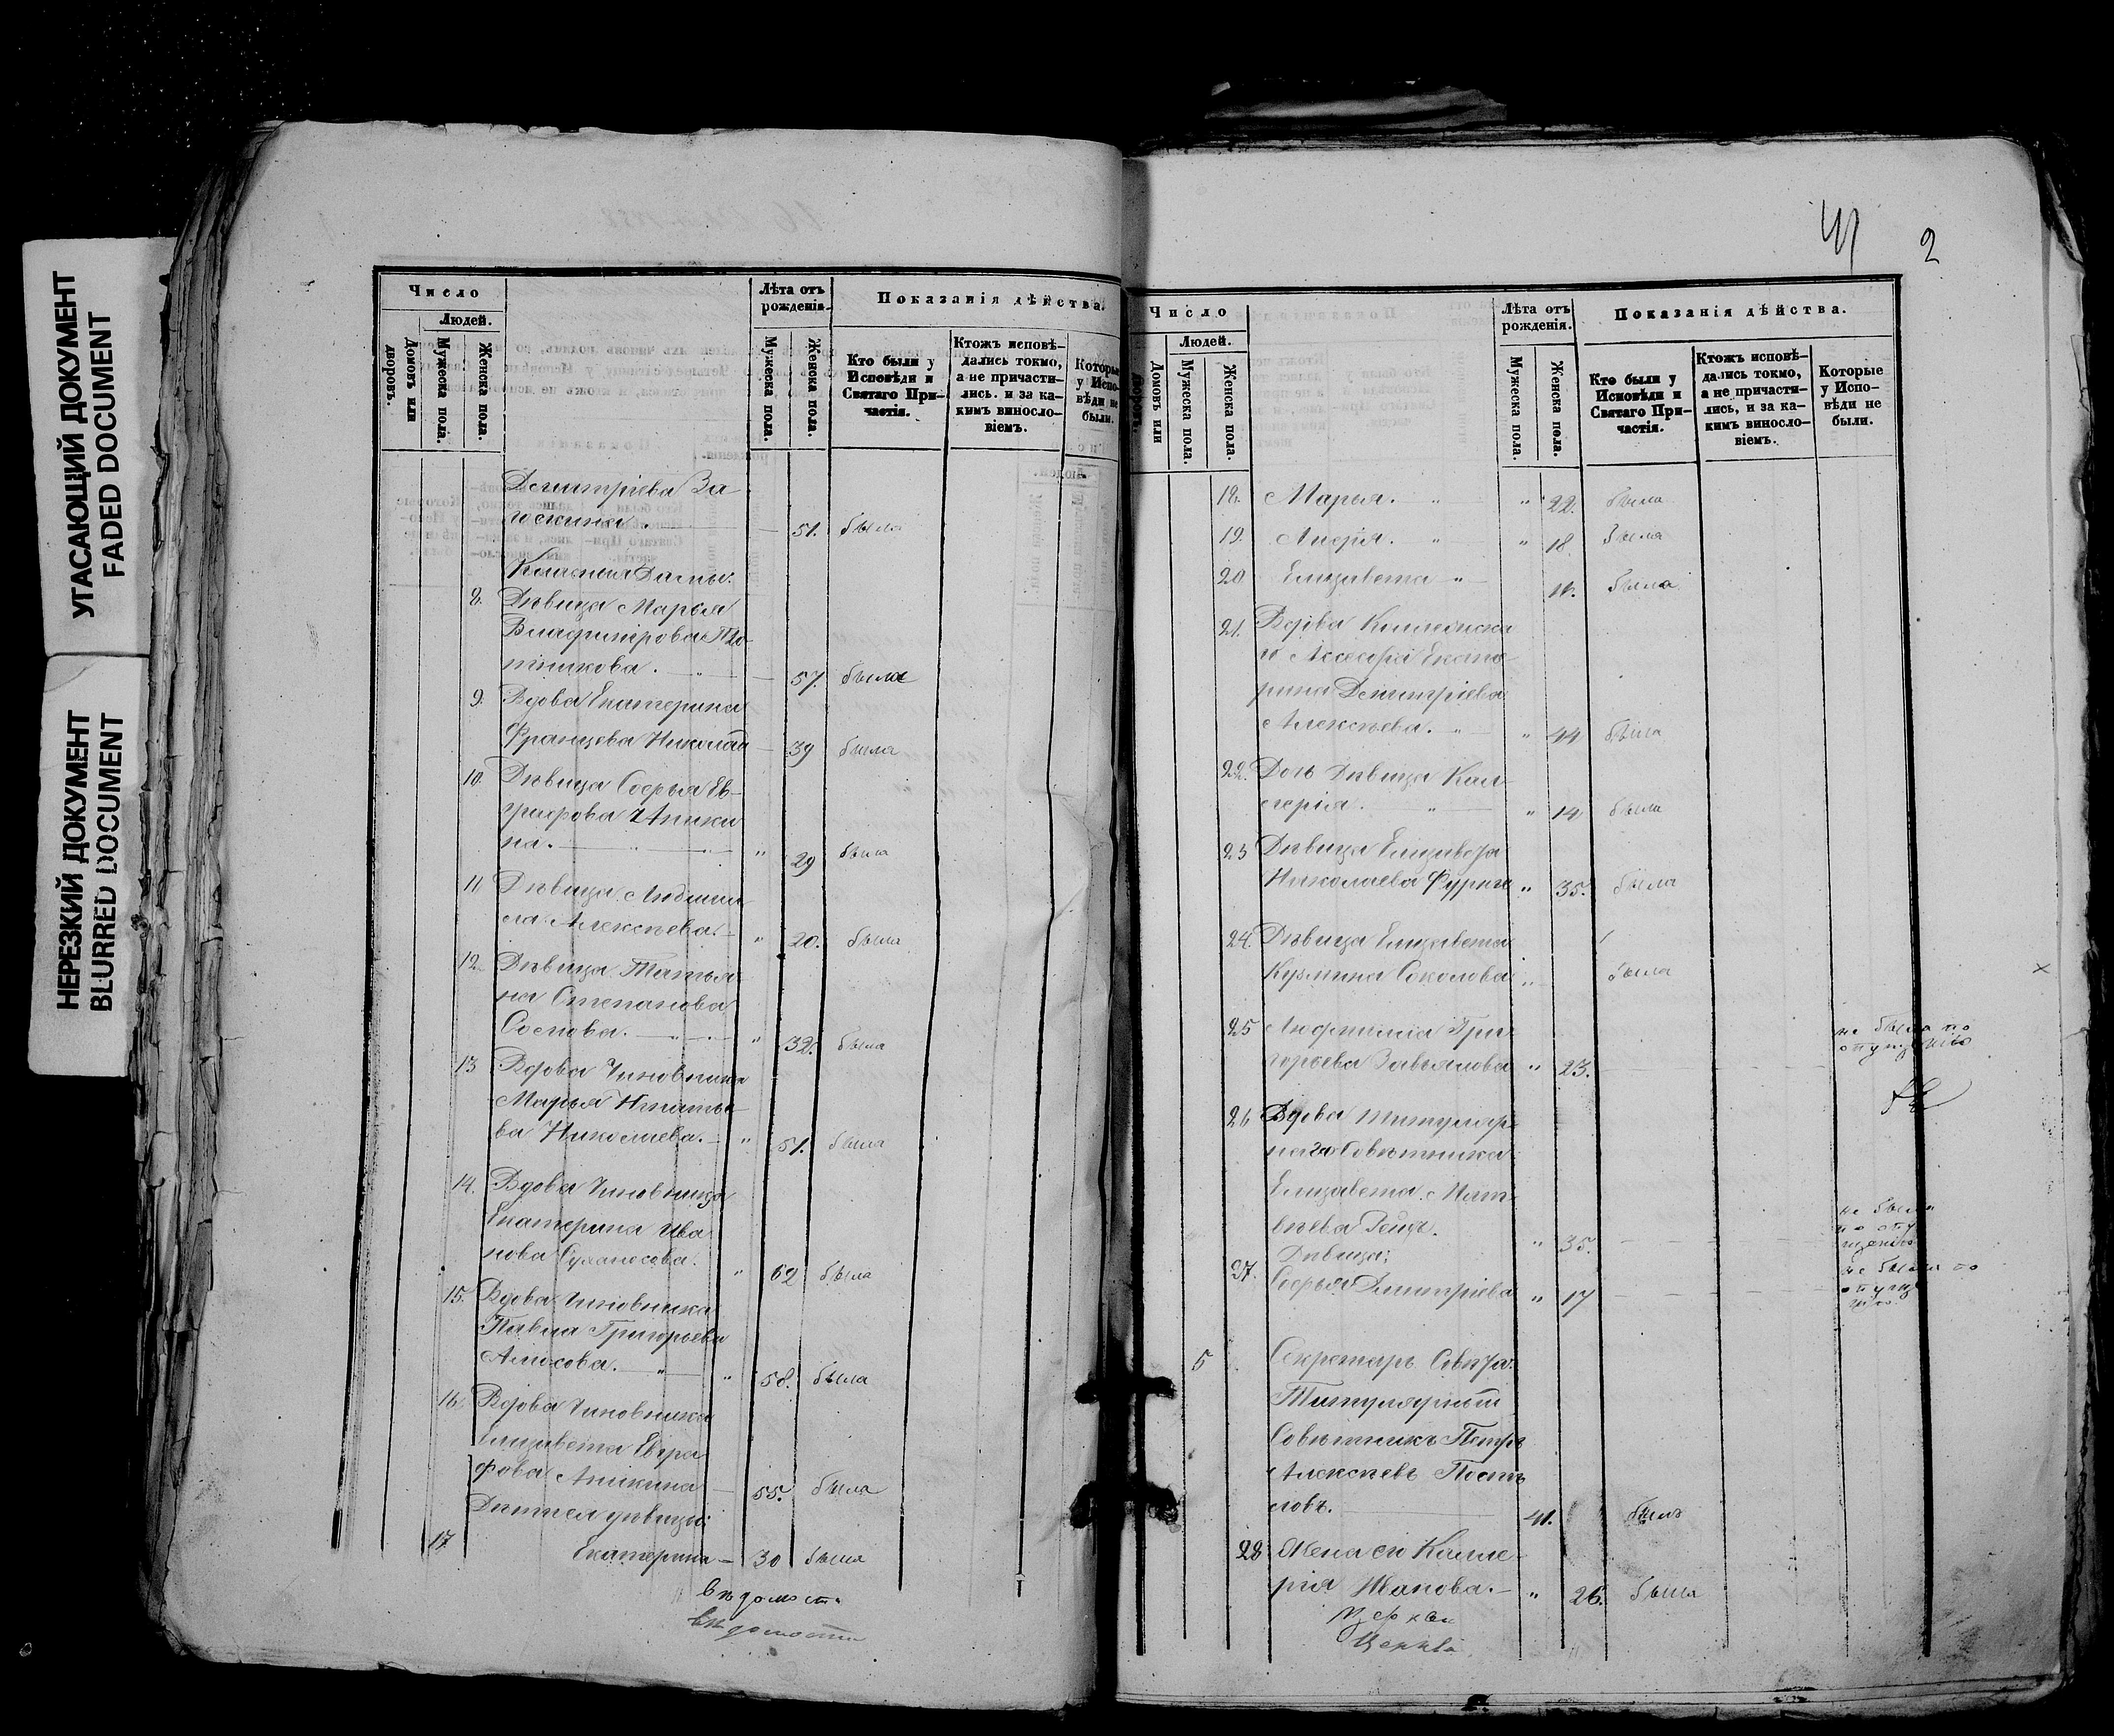 УГАСАЮЩИЙ ДОКУМЕНТ
FADED DOCUMENT
НЕРЕЗКИЙ ДОКУМЕНТ
BLURRED DOCUMENT
Число
Людей.
Домовъ или дворовъ.
Мужеска пола.
Женска пола.
Лѣта отъ рожденія.
Мужеска пола.
Женска пола.
Показанія дѣйства.
Кто были у Исповѣди и Святаго Причастія.
Ктожъ исповѣдались токмо, а не причастились. и за какимъ винословіемъ.
Которые у Исповѣди не были.
Димитріева За
51. была
Класныя Дамы:
8. Дѣвица Марья
Владимірова Пло
тникова. 57. была
9. Вдова Екатерина
Францева Николаи 39 была
10 Дѣвица Софья Ев-
графова Аники
на. " 29 была
11 Дѣвица Людми
ла Алексѣева. " 20. была
12. Дѣвица Татья
на Степанова
Соснова. " 32. была
13 Вдова Чиновника
Марья Игнатье
ва Николаева. " 51. была
14. Вдова Чиновника
Екатерина Ива
нова " 62 была
15. Вдова Чиновника
Павла Григорьева
Амосова. " 58. была
16. Вдова Чиновника
Елизавета Евгра
фова Аникина 55. была
Дѣти ея дѣвицы:
17 Екатерина 30 была
вѣдомость
вѣдомости
41 2
Число
Людей.
Домовъ или дворовъ.
Мужеска пола.
Женска пола.
Лѣта отъ рожденія.
Мужеска пола.
Женска пола.
Показанія дѣйства.
Кто были у Исповѣди и Святаго Причастія.
Ктожъ исповѣдались токмо, а не причастились, и за какимъ винословіемъ.
Которые у Исповѣди не были.
18. Марья. " " 22. была
19. " " 18. была
20 Елизавета " была
21. Вдова Коллежска
го Ассесора Екате
рина Димитріева
Алексѣева. " " 44 была
22. Дочь Дѣвица Кал-
лерія. " " 14 была
23 Дѣвица Елизавета
Николаева " 35. была
24. Дѣвица Елизавета
Кузмина Соколова " была
25 Людмилла Гри
горьева Завьялова " 23. не была по опущенію
26 Вдова Титуляр
наго Совѣтника
Елизавета Мат
вѣева " 35. не была по опущенію
Дѣвица:
27. Софья Димитріева " 17 не была по опущенію
5 Секретарь Совѣта
Титулярный
Совѣтникъ Петръ
Алексѣевъ Постѣ
ловъ. 41. былъ
28 Жена его Калле-
рія Иванова. " 26. была
церкви
Церкви